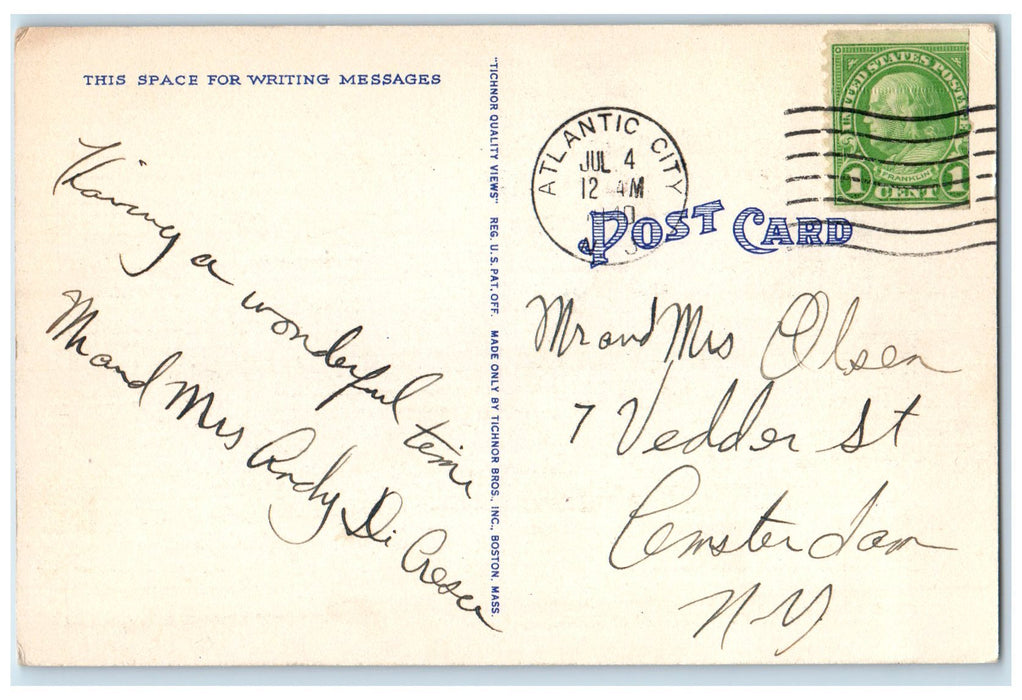 THIS SPACE FOR WRITING MESSAGES
Having a wonderful time
Mr and Mrs Andy Di Cresce
"TICHNOR QUALITY VIEWS" REG. U.S. PAT. OFF. MADE ONLY BY TICHNOR BROS., INC., BOSTON, MASS.
ATLANTIC CITY
JUL 4
12 AM
UNITED STATES POSTAGE
FRANKLIN
1 CENT 1
POST CARD
Mr and Mrs Olsen
7 Vedder St
Amsterdam
N Y